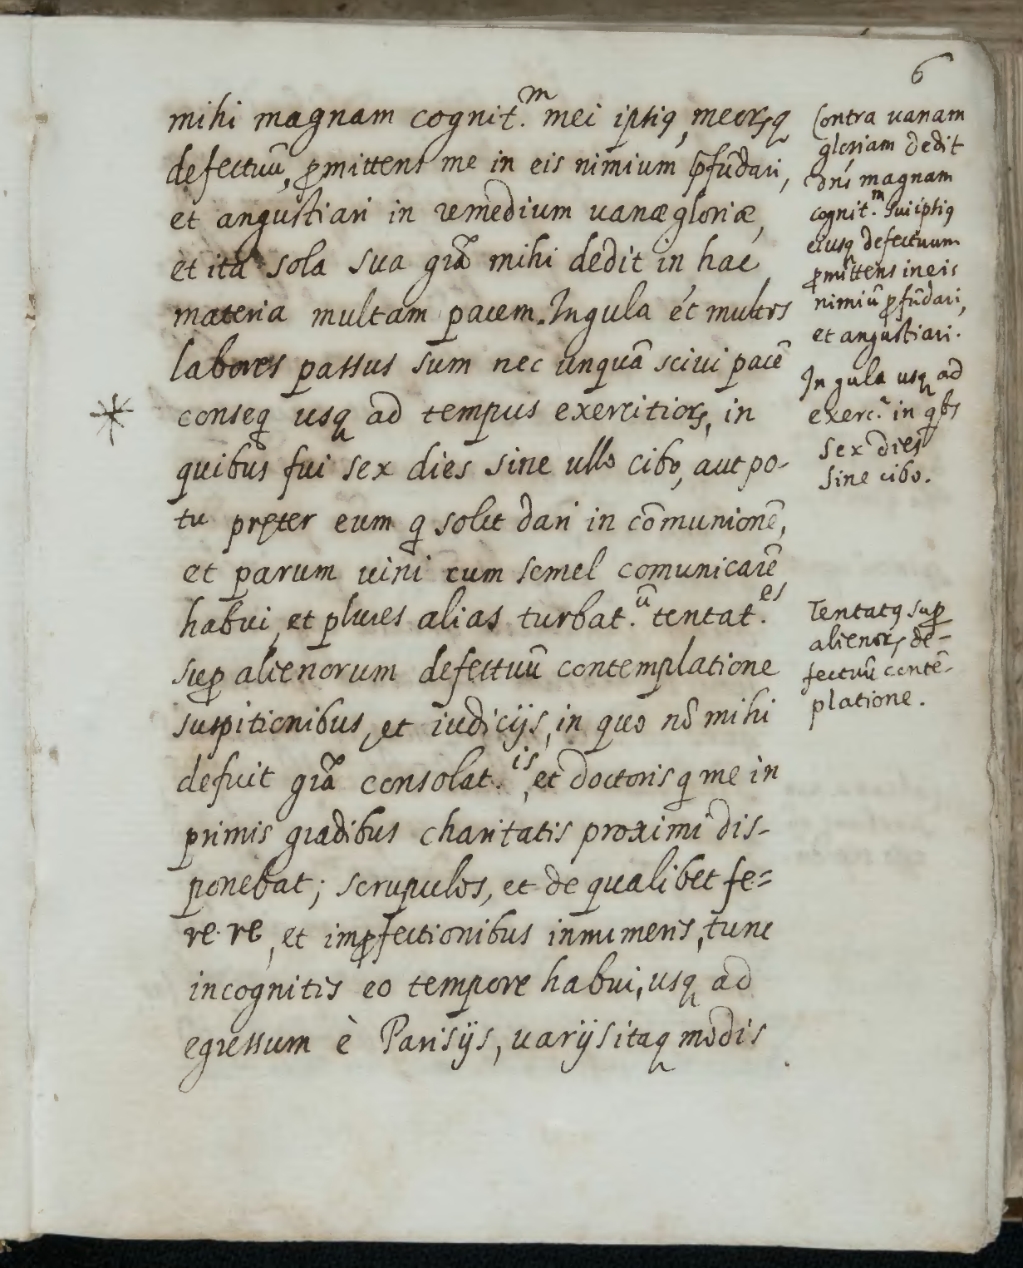 6
mihi magnam cognit.ᵐ mei ipsiꝰ, meorꝝq
defectuū, ꝓmittens me in eis nimium ꝓfūdari,
et angustiari in remedium uanæ gloriæ,
et ita sola sua grā mihi dedit in hac
materia multam pacem. In gula et multos
labores passus sum nec unquā sciui pacē
conseq usq ad tempus exercitioꝝ, in
quibus fui sex dies sine ullo cibo, aut po-
tu pręter eum q solet dari in cōmunionē,
et parum uini cum semel comunicarē
habui, et plures alias turbat.ū tentat.es
suꝑ alienorum defectuū contemplatione
suspitionibus, et iudicijs, in quo nō mihi
defuit grā consolat.is, et doctoris q me in
primis gradibus charitatis proximi dis-
ponebat; scrupulos, et de qualibet fe=
re re, et imꝑfectionibus innumeris, tunc
incognitis eo tempore habui, usq ad
egressum è Parisijs, uarijs itaq modis
Contra uanam
gloriam dedit
Dn̄s magnam
cognit.ᵐ sui ipsiꝰ
eiusq defectuum
ꝓmittens in eis
nimiū ꝓfūdari,
et angustiari.
In gula usq ad
exerc.ᵃ in qbs
sex dies
sine cibo.
Tentatꝰ suꝑ
alienoꝝ de-
fectuū contē-
platione.